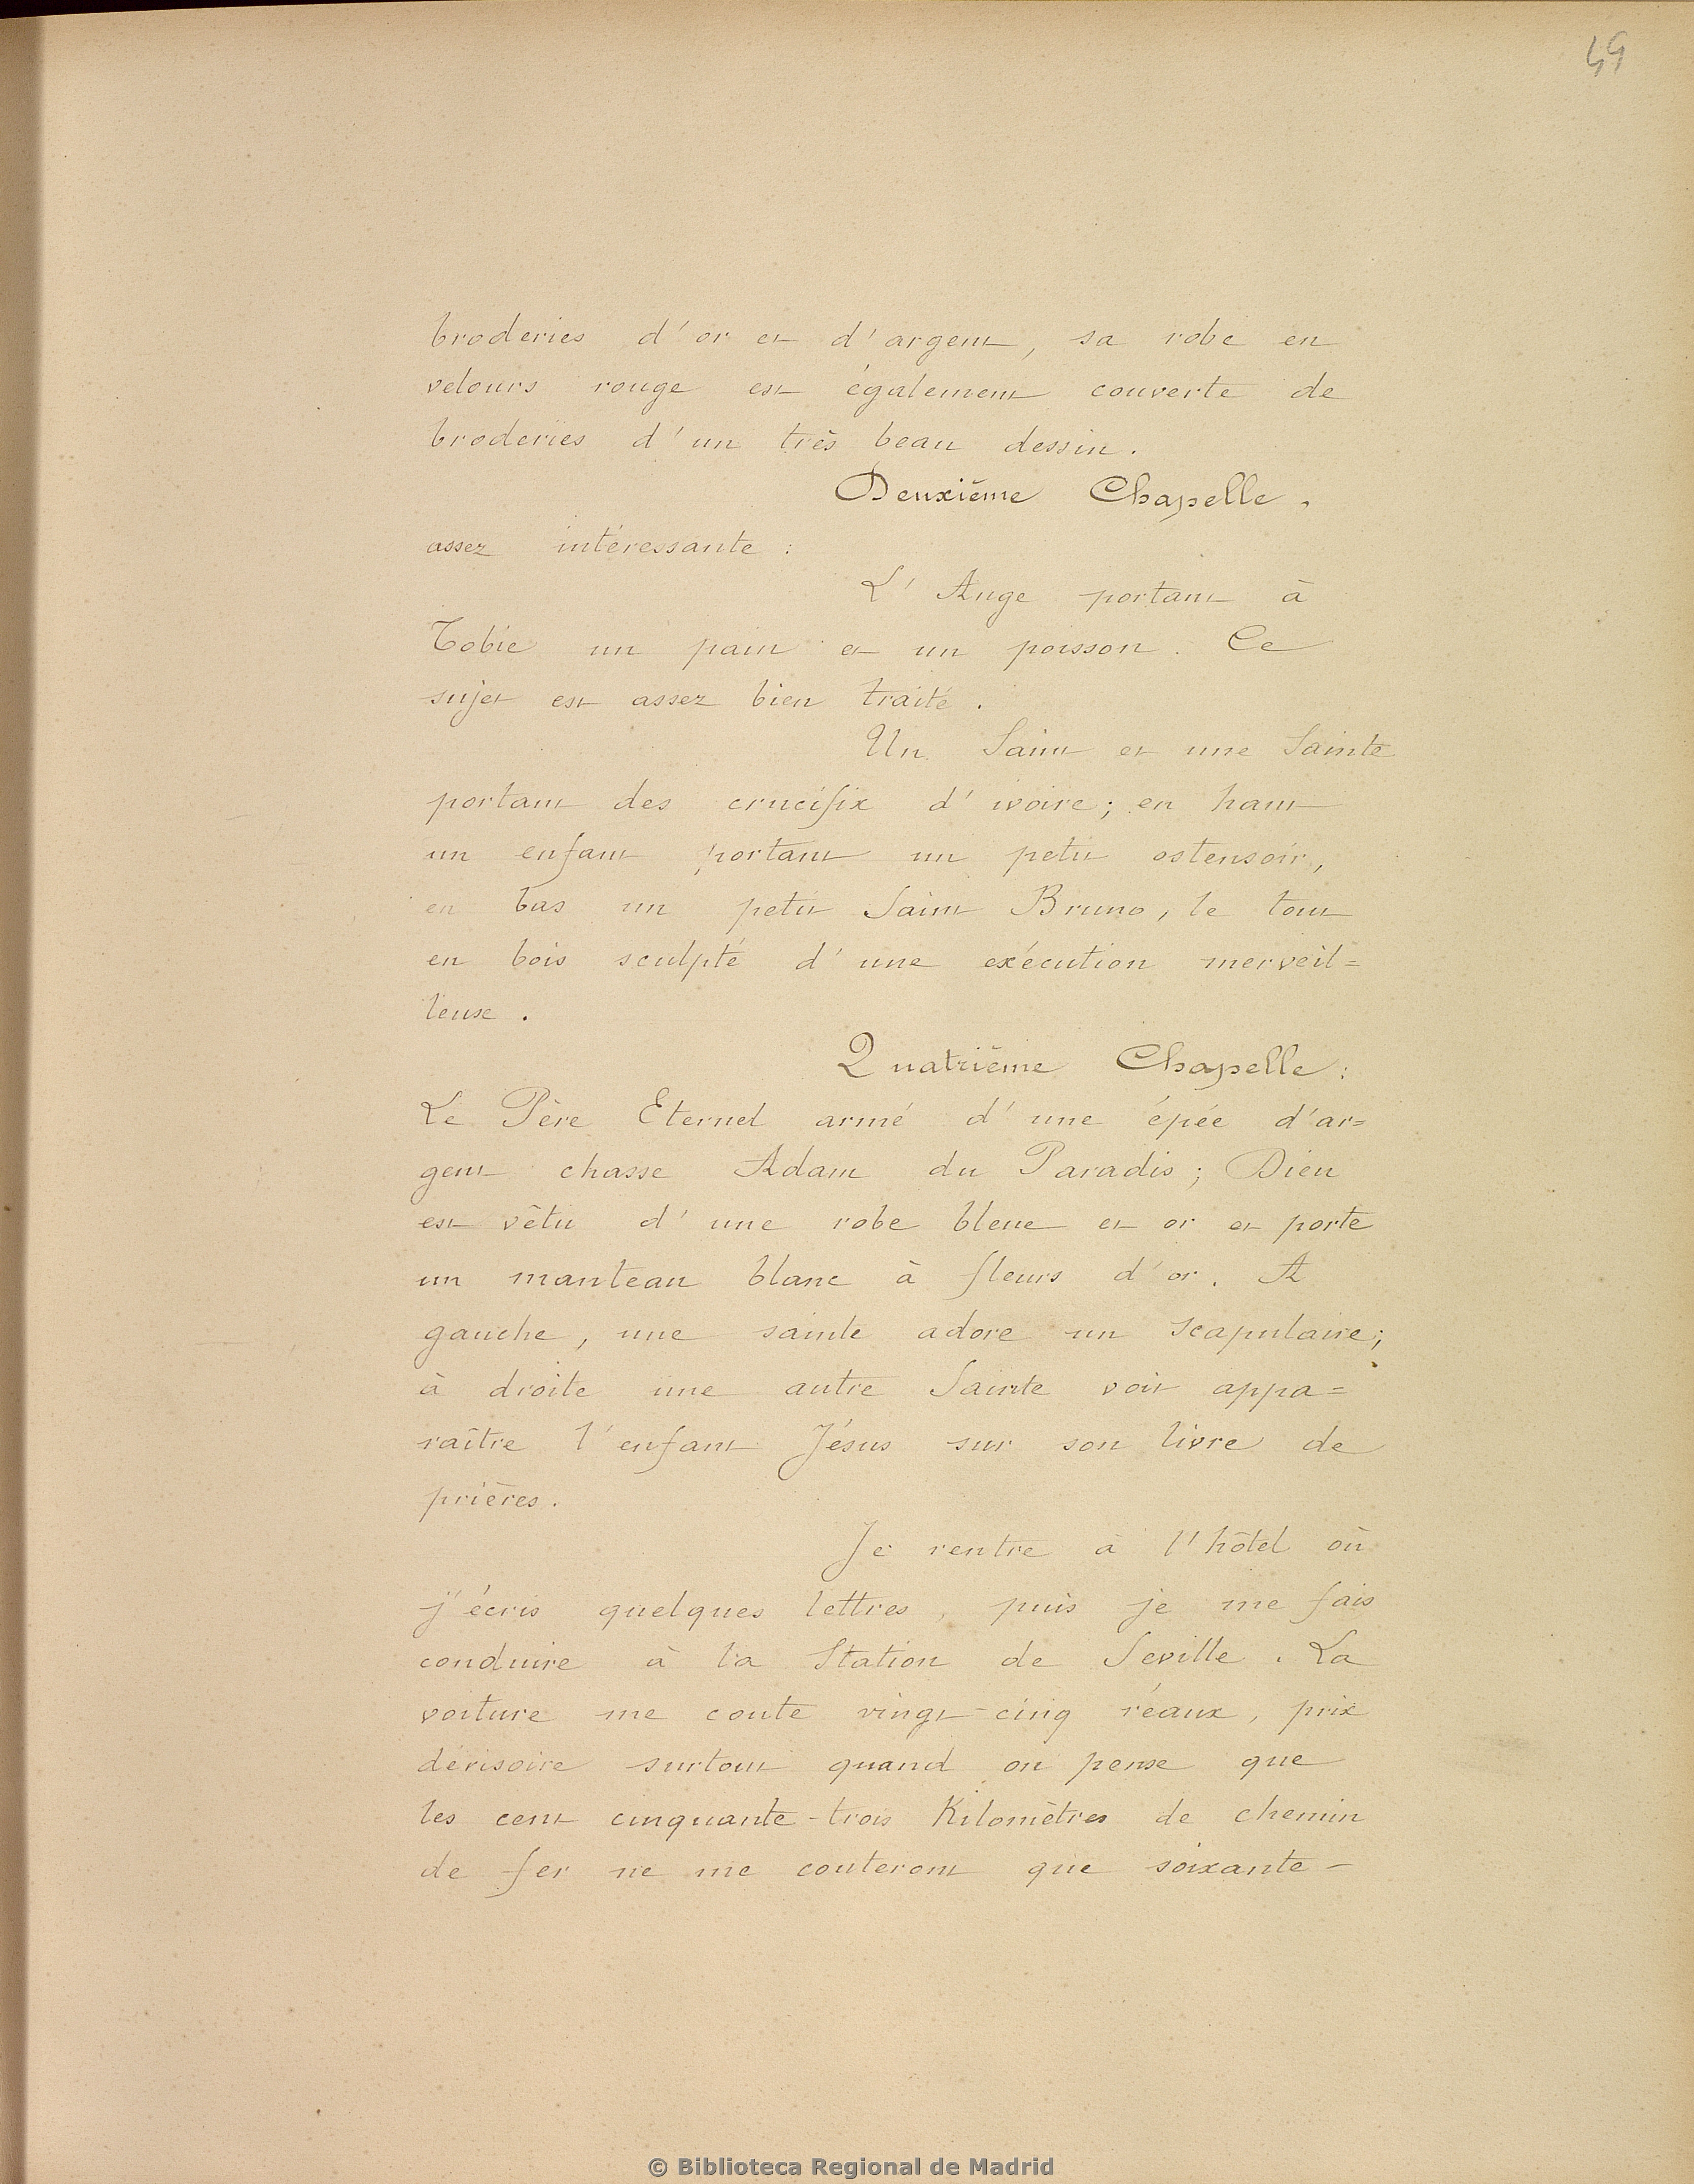 49
broderies d'or et d'argent, sa robe en
velours rouge est également couverte de
broderies d'un très beau dessin.
Deuxième Chapelle.
assez intéressante :
L'Ange portant à
Tobie un pain et un poisson. Ce
sujet est assez bien traité.
Un Saint et une Sainte
portant des crucifix d'ivoire; en haut
un enfant portant un petit ostensoir,
en bas un petit Saint Bruno, le tout
en bois sculpté d'une exécution merveil=
leuse.
Quatrième Chapelle:
Le Père Eternel armé d'une épée d'ar=
gent chasse Adam du Paradis; Dieu
est vêtu d'une robe bleue et or et porte
un manteau blanc à fleurs d'or. A
gauche, une sainte adore un Scapulaire;
à droite une autre Sainte voit appa=
raître l'enfant Jésus sur son livre de
prières.
Je rentre à l'hôtel où
j'écris quelques lettres, puis je me fais
conduire à la Station de Seville. La
voiture me coute vingt-cinq réaux, prix
dérisoire surtout quand on pense que
les cent cinquante-trois Kilomètres de chemin
de fer ne me couteront que soixante-
© Biblioteca Regional de Madrid